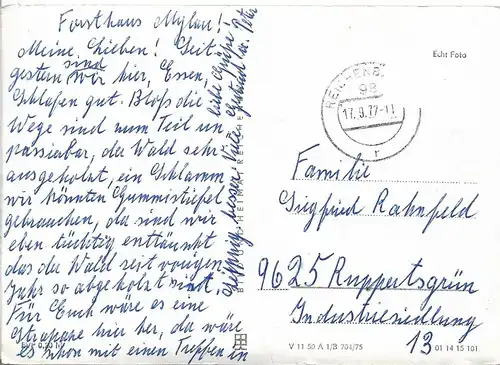 Forsthaus Mylau!
Meine Lieben! Seit
gestern sind wir hier, Essen,
Schlafen gut. Bloß die
Wege sind zum Teil un
passierbar, da Wald sehr
ausgeholzt, ein Schlamm
wir könnten Gummistiefel
gebrauchen, da sind wir
eben tüchtig enttäuscht
das da Wald seit vorigen
Jahr so abgeholzt sind.
Für Euch wäre es eine
Strapaze hier her, da wäre
es schon mit einen Treffen in
besser. Viele liebe Grüße
Gertrud u. Peter
Echt Foto
98
17.9.77-11
r
Familie
Siegfried Rahnfeld
9625 Ruppertsgrün
Industriesiedlung
13
V 11 50 A 1/B 704/75
01 14 15 101